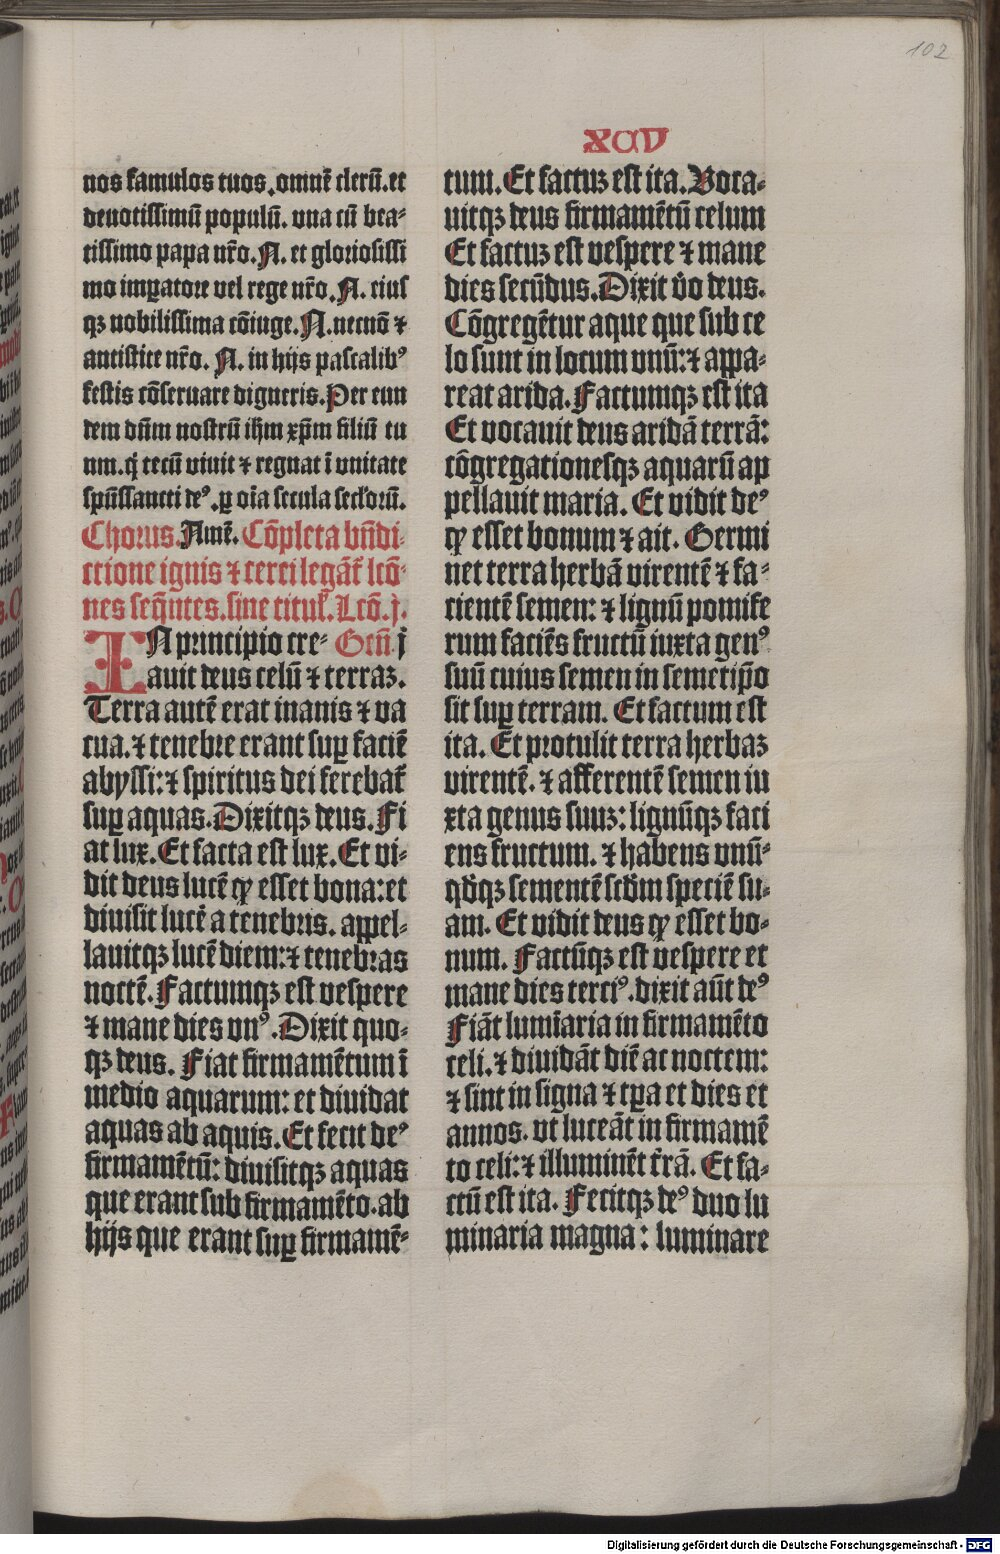 102
XCV
nos famulos tuos. omnē clerū. et
deuotissimū populū. vna cū bea-
tissimo papa nr̄o. N. et gloriosissi
mo imꝑatore vel rege nr̄o. N. eius
qꝫ nobilissima cōiuge. N. necnō ⁊
antistite nr̄o. N. in hijs pascalibꝰ
festis cōseruare digneris. Per eun
dem dn̄m nostrū ihm xp̄m filiū tu
um. q̇ tecū viuit ⁊ regnat ī vnitate
spūssancti deꝰ. ꝑ oīa secula seclorū.
Chorus. Amē. Cōpleta bn̄di-
ctione ignis ⁊ cerei legāt̉ lcō-
nes seq̄ntes. sine titul̓. Lcō. j.
IN principio cre- Geñ. j
auit deus celū ⁊ terraꝫ.
Terra autē erat inanis ⁊ va
cua. ⁊ tenebre erant suꝑ faciē
abyssi: ⁊ spiritus dei ferebat̉
suꝑ aquas. Dixitqꝫ deus. Fi
at lux. Et facta est lux. Et vi-
dit deus lucē ꝙ esset bona: et
diuisit lucē a tenebris. appel-
lauitqꝫ lucē diem: ⁊ tenebras
noctē. Factumqꝫ est vespere
⁊ mane dies vnꝰ. Dixit quo-
qꝫ deus. Fiat firmamētum ī
medio aquarum: et diuidat
aquas ab aquis. Et fecit deꝰ
firmamētū: diuisitqꝫ aquas
que erant sub firmamēto. ab
hijs que erant suꝑ firmamē-
tum. Et factuꝫ est ita. Voca-
uitqꝫ deus firmamētū celum
Et factuꝫ est vespere ⁊ mane
dies secūdus. Dixit v̊o deus.
Cōgregētur aque que sub ce
lo sunt in locum vnū: ⁊ appa-
reat arida. Factumqꝫ est ita
Et vocauit deus aridā terrā:
cōgregationesqꝫ aquarū ap
pellauit maria. Et vidit deꝰ
ꝙ esset bonum ⁊ ait. Germi
net terra herbā virentē ⁊ fa-
cientē semen: ⁊ lignū pomife
rum faciēs fructū iuxta genꝰ
suū cuius semen in semetip̄o
sit suꝑ terram. Et factum est
ita. Et protulit terra herbaꝫ
virentē. ⁊ afferentē semen iu
xta genus suuꝫ: lignūqꝫ faci
ens fructum. ⁊ habens vnū-
qd̓qꝫ sementē scd̓m speciē su-
am. Et vidit deus ꝙ esset bo-
num. Factūqꝫ est vespere et
mane dies terciꝰ. dixit aūt deꝰ
Fiāt lumīaria in firmamēto
celi. ⁊ diuidāt diē ac noctem:
⁊ sint in signa ⁊ tꝑa et dies et
annos. vt luceāt in firmamē
to celi: ⁊ illuminēt t̄rā. Et fa-
ctū est ita. Fecitqꝫ deꝰ duo lu
minaria magna: luminare
Digitalisierung gefördert durch die Deutsche Forschungsgemeinschaft - DFG